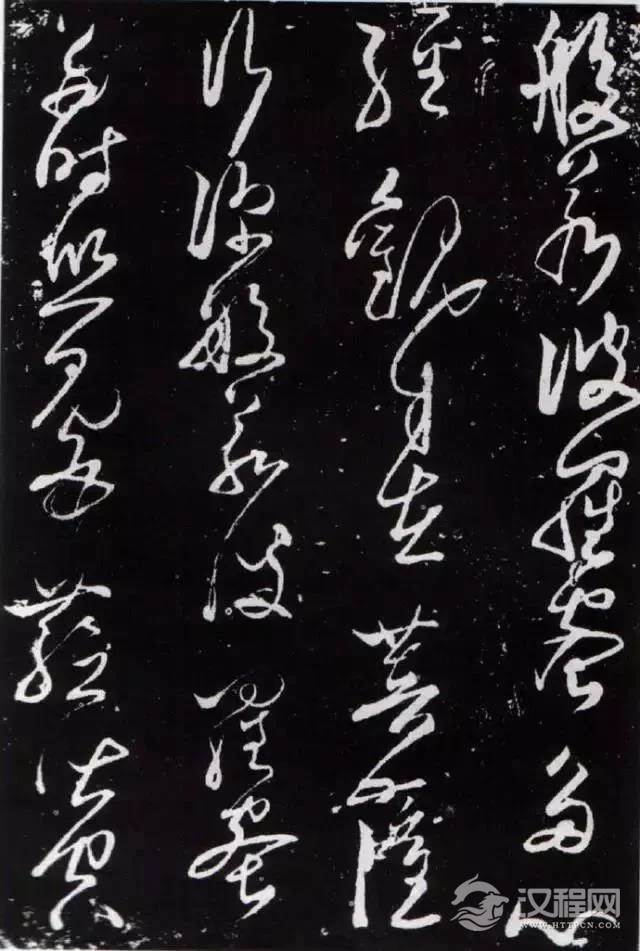 般若波羅蜜多心
經觀自在菩薩
行深般若波羅蜜
多時照見五蘊皆空
汉程网
WWW.HTTPCN.COM